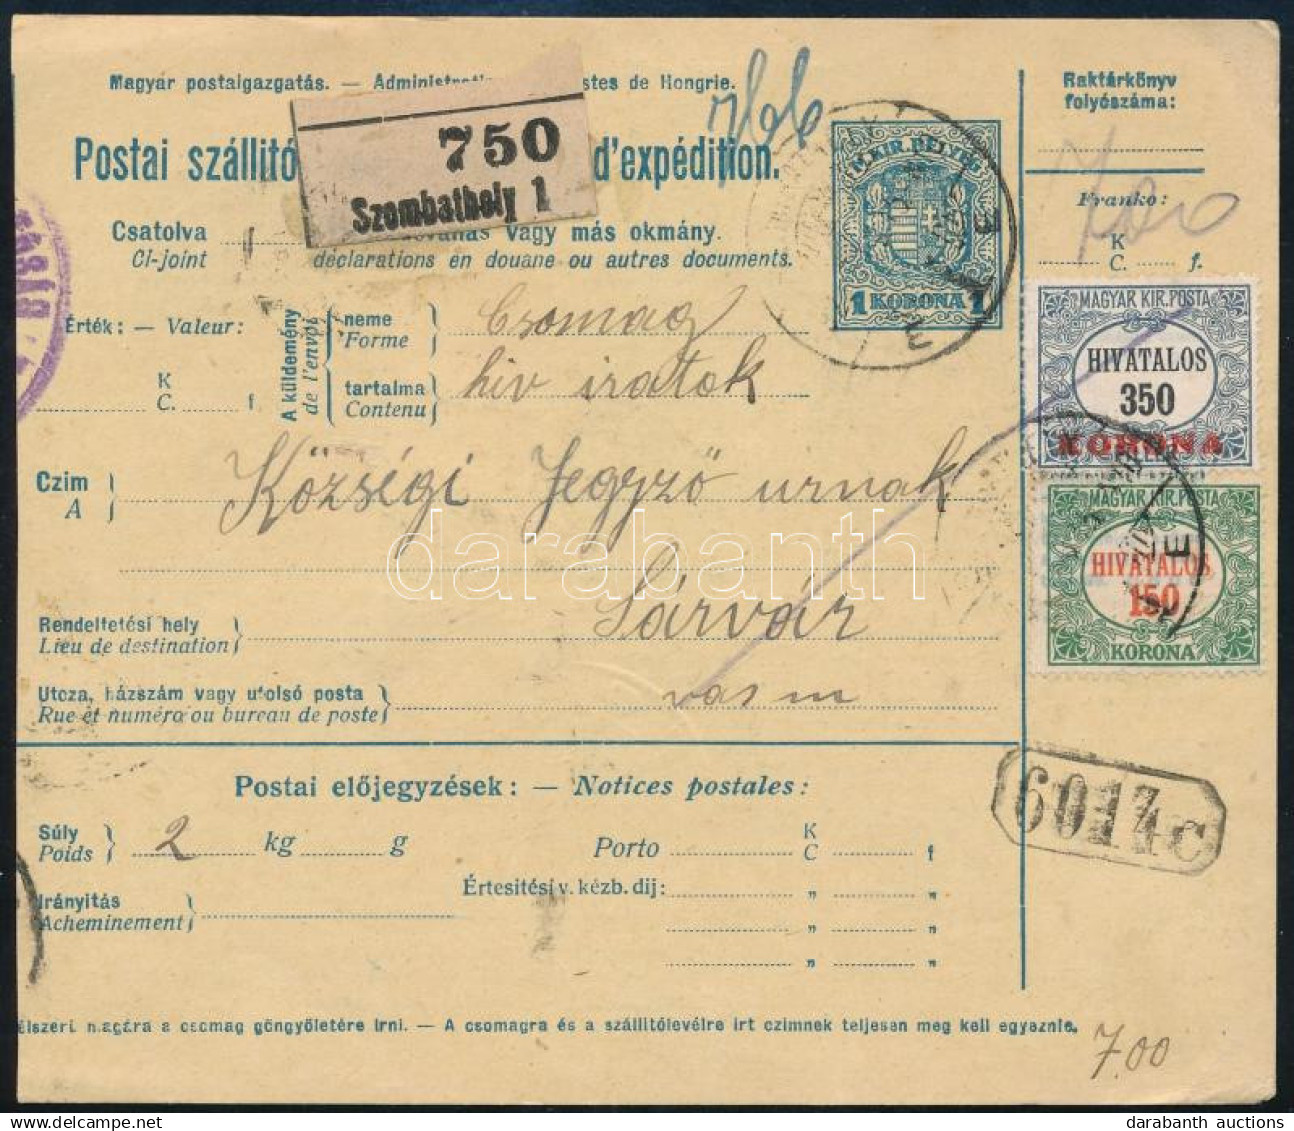 Magyar postaigazgatás. — Administrati stes de Hongrie.
Postai szállitó d'expédition.
750
Szombathely 1
Raktárkönyv
folyószáma:
Franko:
K
C. f.
M. KIR. BÉLYEG
1 KORONA 1
Csatolva vagy más okmány.
Ci-joint déclarations en douane ou autres documents.
Érték: — Valeur:
K
C. f
A küldemény
de l'envoi
neme
Forme
Csomag
tartalma
Contenu
hiv iratok
MAGYAR KIR. POSTA
HIVATALOS
350
KORONA
Czim
A
Községi Jegyző urnak
MAGYAR KIR. POSTA
HIVATALOS
150
KORONA
darabanth
Rendeltetési hely
Lieu de destination
Sárvár
Utcza, házszám vagy utolsó posta
Rue et numéro ou bureau de poste
vas m
Postai előjegyzések: — Notices postales:
Súly
Poids
2 kg g
Porto
K
C f
Értesitési v. kézb. dij: „ „
„ „
„ „
Irányitás
Acheminement
élszerű magára a csomag göngyöletére irni. — A csomagra és a szállitólevélre irt czimnek teljesen meg kell egyeznie.
7.00
darabanth auctions